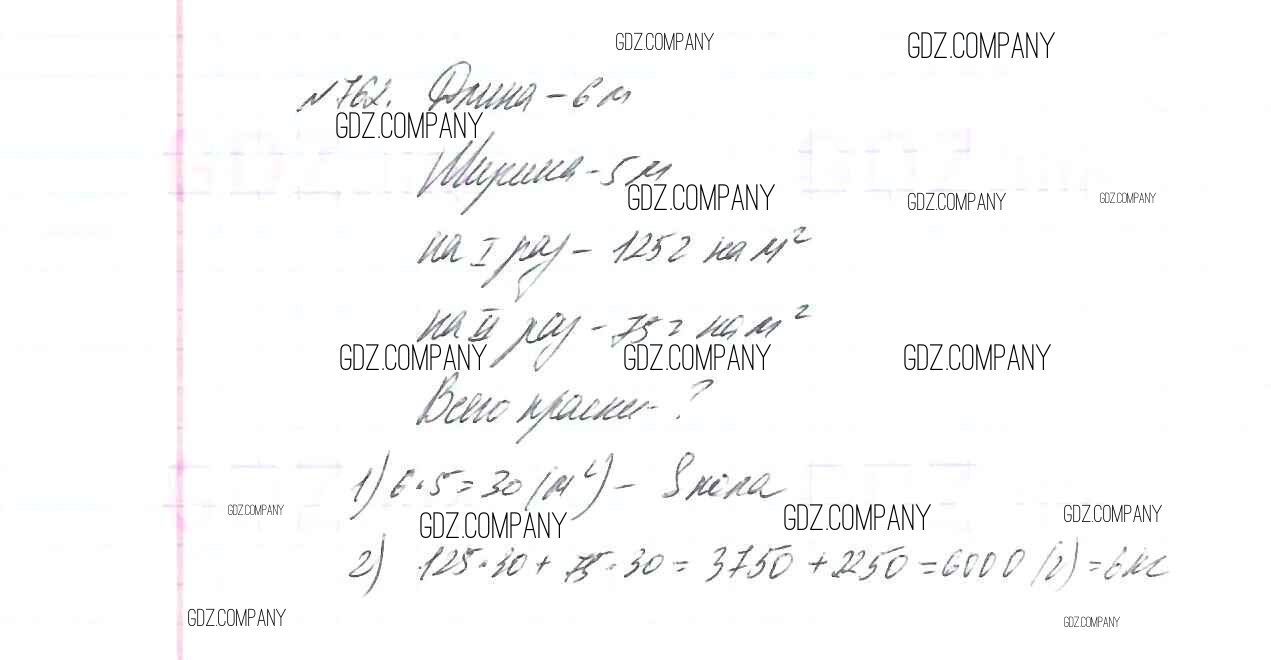 GDZ.COMPANY
GDZ.COMPANY
№762. Длина - 6 м
GDZ.COMPANY
Ширина - 5 м
GDZ.COMPANY
GDZ.COMPANY
GDZ.COMPANY
на I раз - 125 г на м²
на II раз - 75 г на м²
GDZ.COMPANY
GDZ.COMPANY
GDZ.COMPANY
Всего краски - ?
1) 6·5 = 30 (м²) - S пола
GDZ.COMPANY
GDZ.COMPANY
GDZ.COMPANY
GDZ.COMPANY
2) 125·30 + 75·30 = 3750 + 2250 = 6000 (г) = 6 кг
GDZ.COMPANY
GDZ.COMPANY